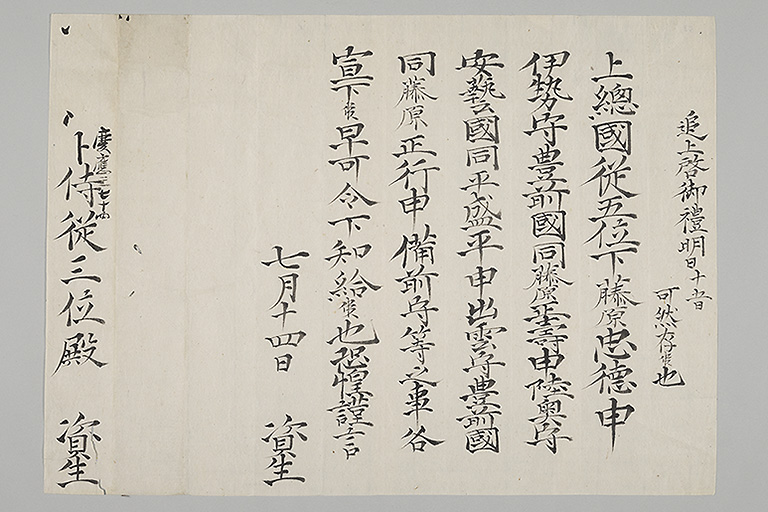 追上啓御禮明日十五日
可然存候也
上總國従五位下藤原忠德申
伊勢守豊前國同藤原正壽申陸奥守
安藝國同平盛平申出雲守豊前國
同藤原正行申備前守等之事各
宣下候早可令下知給候也恐惶謹言
七月十四日 資生
慶應三七十四
卜侍従三位殿 資生